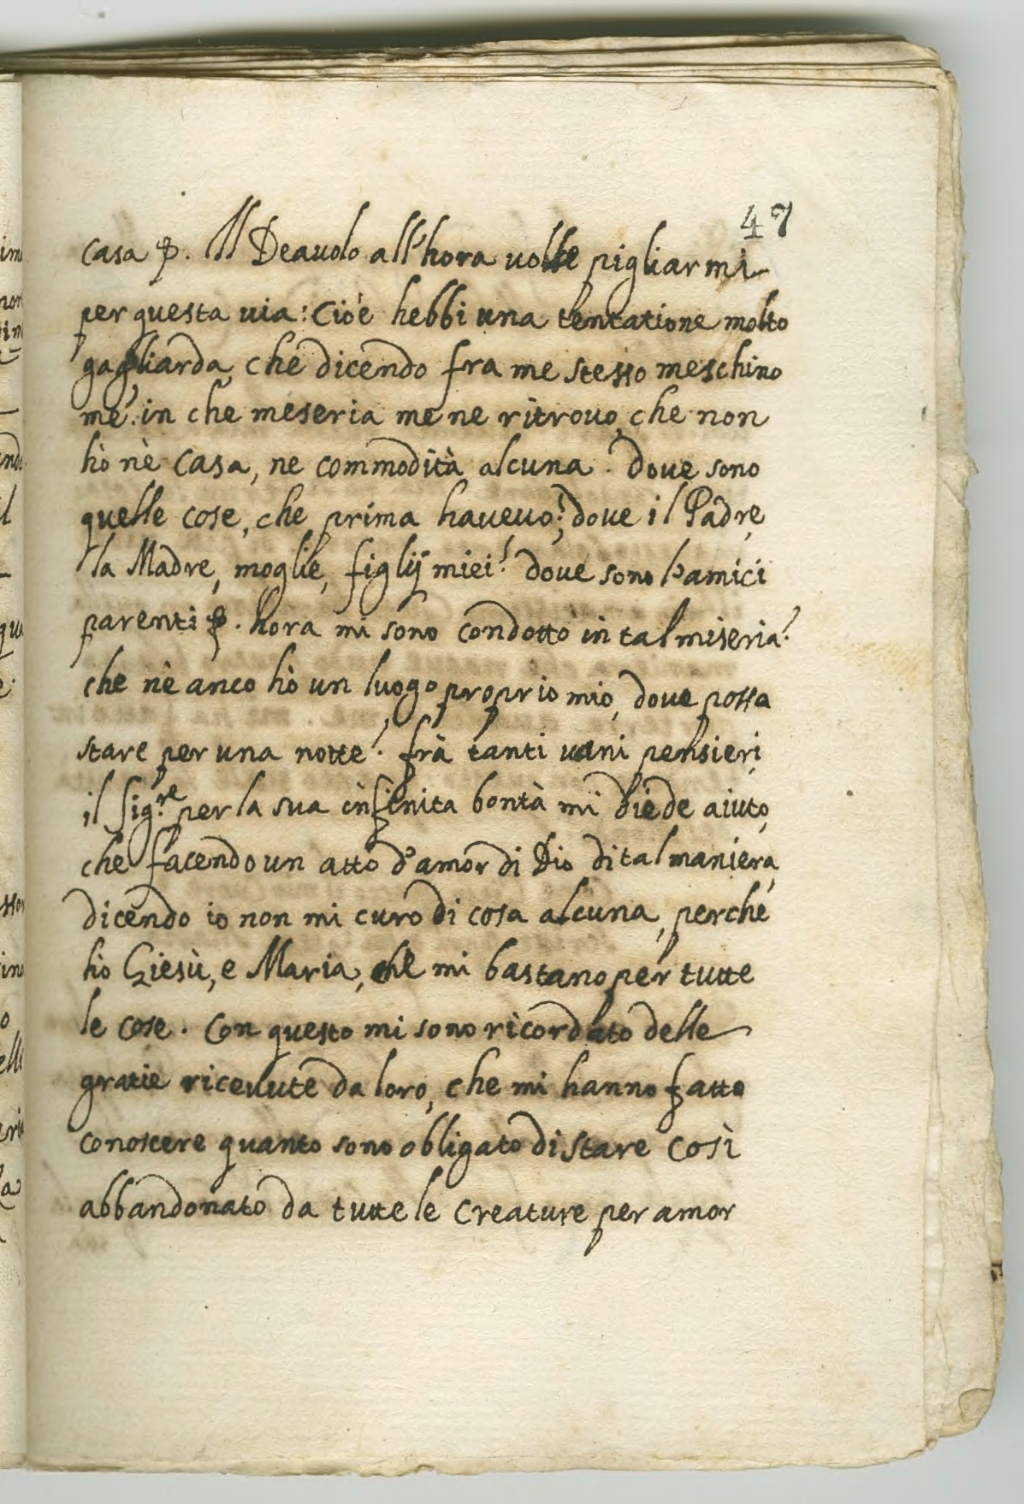 47
casa &. Il Deauolo all'hora uolse pigliarmi
per questa uia: Cioè hebbi una tentatione molto
gagliarda, che dicendo fra me stesso meschino
me, in che meseria me ne ritrouo, che non
hò nè casa, ne commodità alcuna. Doue sono
quelle cose, che prima haueuo? doue il Padre,
la Madre, moglie, figlij miei? doue sono l'amici
parenti &. hora mi sono condotto in tal miseria?
che nè anco hò un luogo proprio mio, doue possa
stare per una notte? frà tanti uani pensieri
il Sig.re per la sua infinita bontà mi diede aiuto,
che facendo un atto d'amor di Dio di tal maniera,
dicendo io non mi curo di cosa alcuna, perche
hò Giesù, e Maria, che mi bastano per tutte
le cose. Con questo mi sono ricordato delle
gratie riceuute da loro, che mi hanno fatto
conoscere quanto sono obligato di stare così
abbandonato da tutte le creature per amor